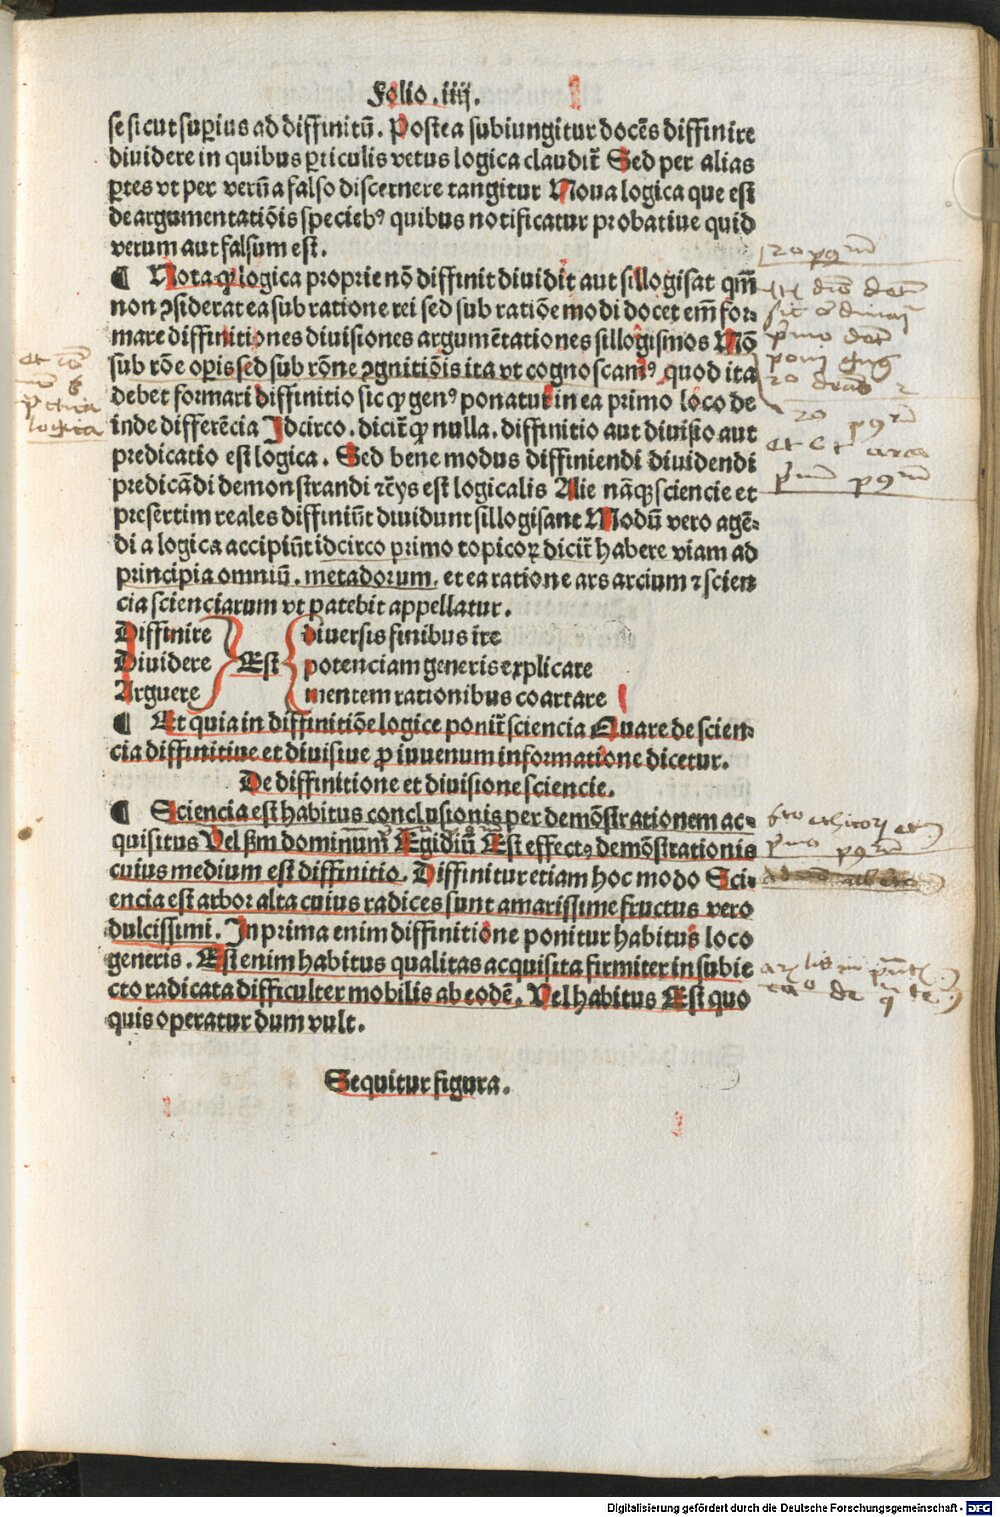 Folio .iiij.
se sicut superius ad diffinitū. Postea subiungitur docēs diffinire
diuidere in quibus ꝑticulis vetus logica claudit᷑ Sed per alias
ꝑtes vt per verū a falso discernere tangitur Noua logica que est
de argumentatiōis specieb⁹ quibus notificatur probatiue quid
verum aut falsum est.
¶ Nota ꝙ logica proprie nō diffinit diuidit aut sillogisat qm̄
non ꝯsiderat ea sub ratione rei sed sub ratiōe modi docet em̄ for⸗
mare diffinitiones diuisiones argumētationes sillogismos Nō
sub rōe operis sed sub rōne ꝯgnitiōis ita vt cognoscam⁹ quod ita
debet formari diffinitio sic ꝙ gen⁹ ponatur in ea primo loco de
inde differēcia Idcirco. dicit᷑ ꝙ nulla. diffinitio aut diuisio aut
predicatio est logica. Sed bene modus diffiniendi diuidendi
predicādi demonstrandi ⁊c̄ys est logicalis Alie nāqꝫ sciencie et
presertim reales diffiniūt diuidunt sillogisant Modū vero agē⸗
di a logica accipiūt idcirco primo topicoꝝ dicit᷑ habere viam ad
principia omniū. metadorum. et ea ratione ars arcium ⁊ scien
cia scienciarum vt patebit appellatur.
Diffinire diuersis finibus ire
Diuidere Est potenciam generis explicare
Arguere mentem rationibus coartare
¶ Et quia in diffinitiōe logice ponit᷑ sciencia Quare de scien⸗
cia diffinitiue et diuisiue ꝓ iuuenum informatione dicetur.
De diffinitione et diuisione sciencie.
¶ Sciencia est habitus conclusionis per demōstrationem ac⸗
quisitus Vel ẜm dominum Egidiū Est effectꝰ demōstrationis
cuius medium est diffinitio. Diffinitur etiam hoc modo Sci⸗
encia est arbor alta cuius radices sunt amarissime fructus vero
dulcissimi. In prima enim diffinitiōne ponitur habitus loco
generis. Est enim habitus qualitas acquisita firmiter in subie
cto radicata difficulter mobilis ab eodē. Vel habitus Est quo
quis operatur dum vult.
Sequitur figura.
Digitalisierung gefördert durch die Deutsche Forschungsgemeinschaft - DFG